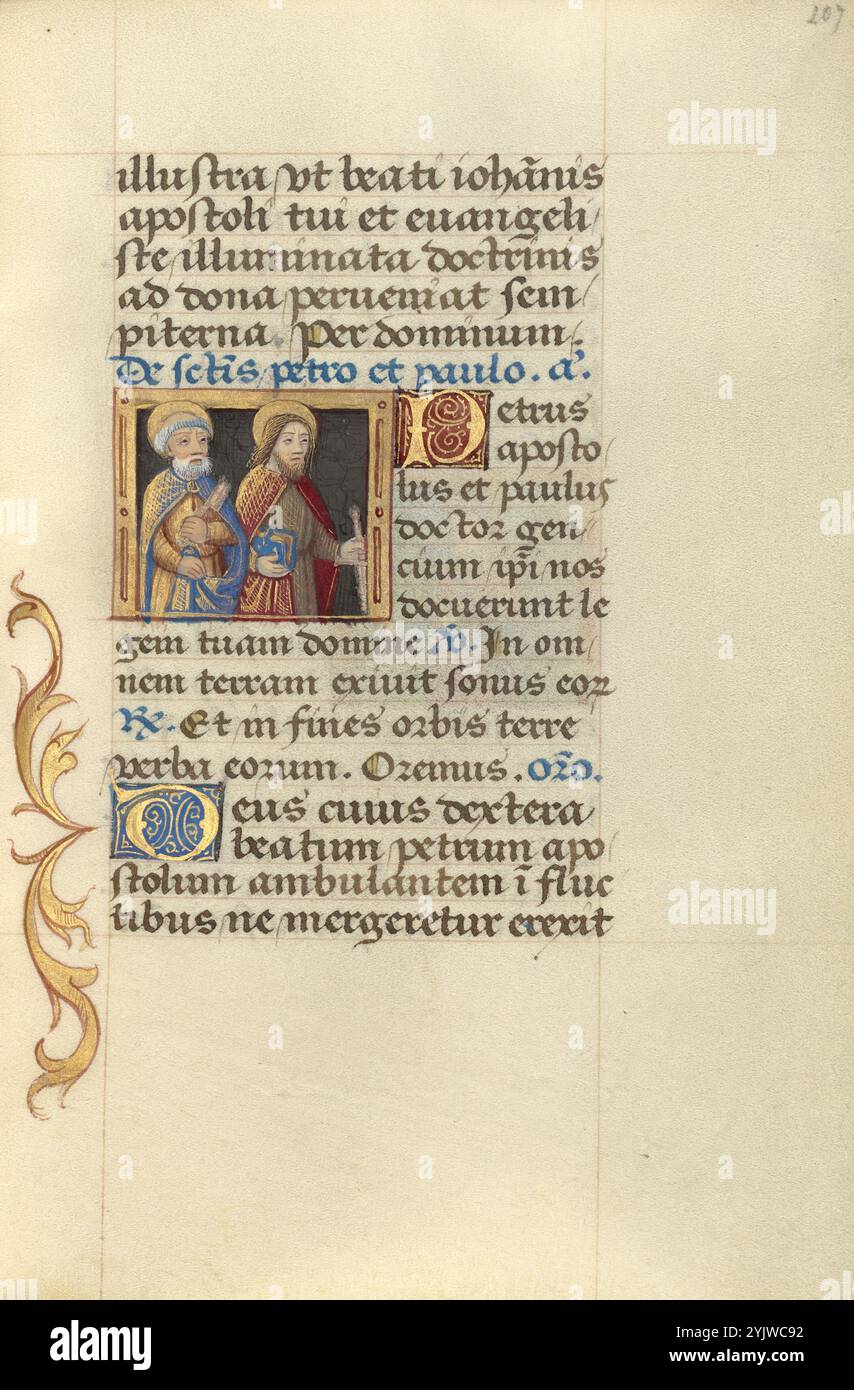 207
illustra vt beati ioha̅nis
apostoli tui et euangeli/
ste illuminata doctri̅nis
ad dona perueniat sem/
piterna. Per dominum.
De sctīs petro et paulo. a̅.
Petrus
aposto
lus et paulus
doctor gen/
cium ip̅i nos
docuerunt le
gem tuam domine ℣. In om/
nem terram exiuit sonus eoꝝ
℟. Et in fines orbis terre
verba eorum. Oremus. oro̅.
Deus cuius dextera
beatum petrum apo
stolum ambulantem i̅ fluc
tibus ne mergeretur erexit
alamy
alamy
alamy
Image ID: 2YJWC92
www.alamy.com